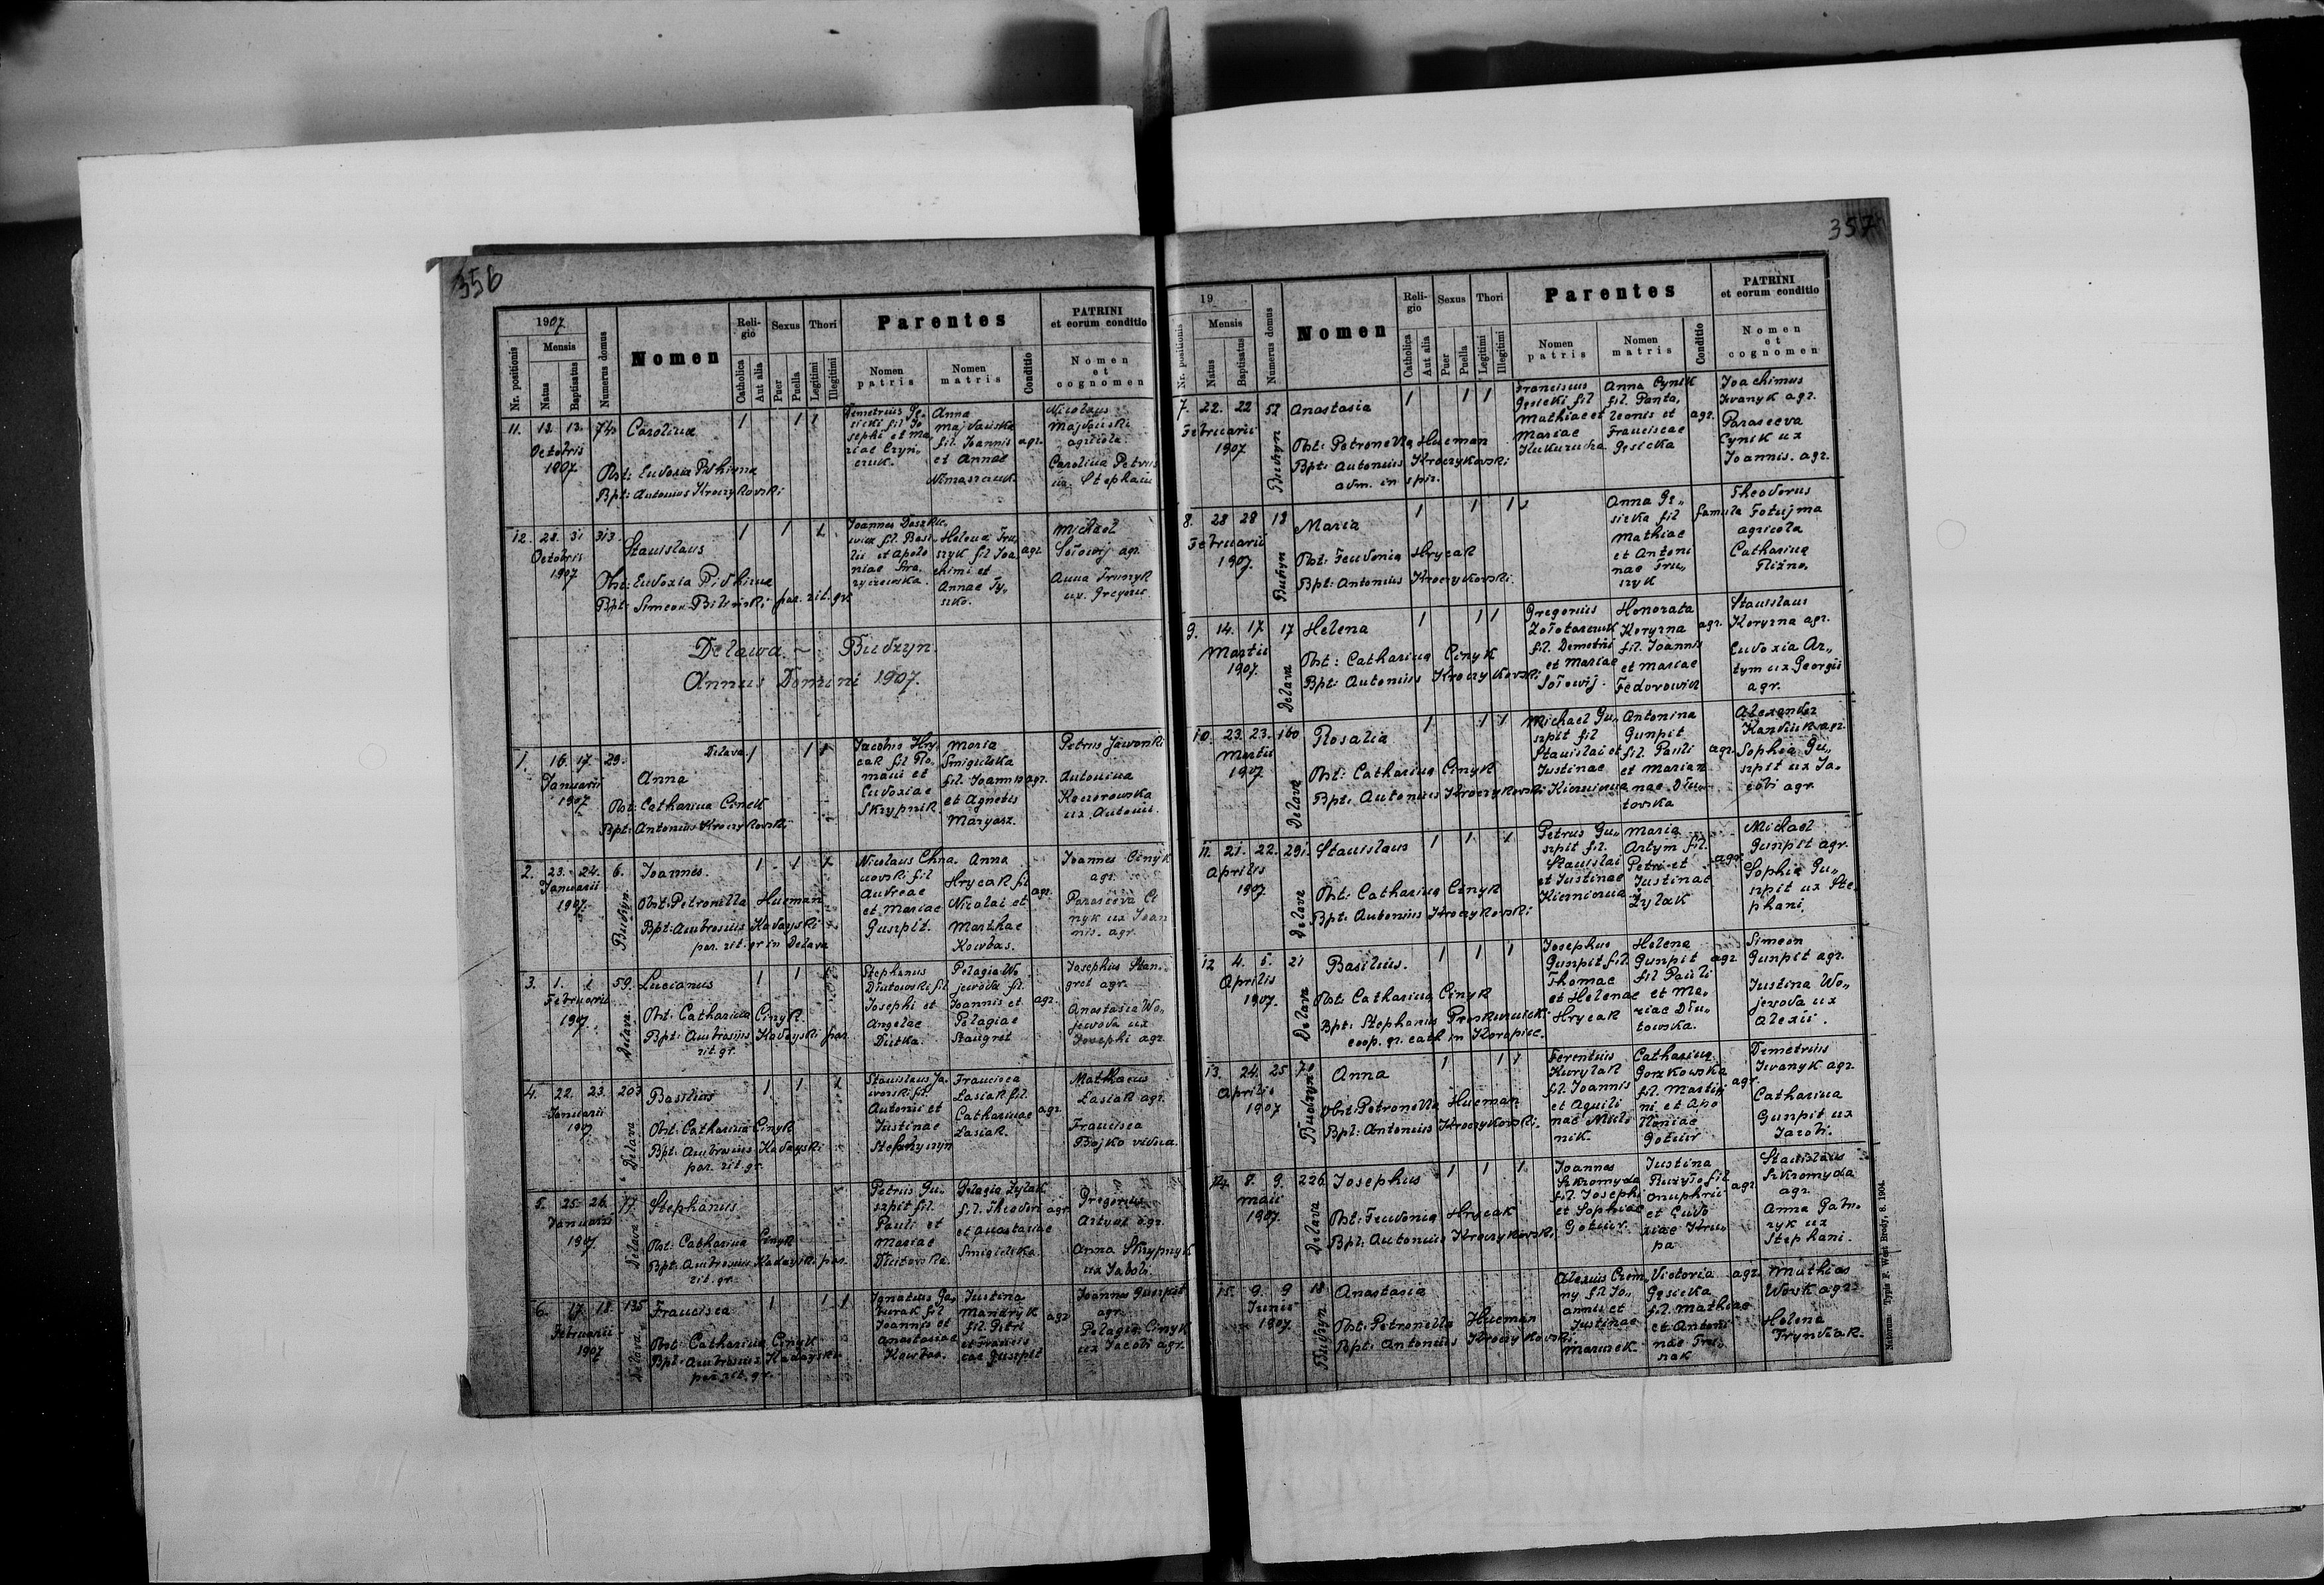 356
1907
Mensis
Nr. positionis
Natus
Baptisatus
Numerus domus
Nomen
Religio
Catholica
Aut alia
Sexus
Puer
Puella
Thori
Legitimi
Illegitimi
Parentes
Nomen patris
Nomen matris
Conditio
PATRINI
et eorum conditio
Nomen
et
cognomen
11. 13. 13. 74
Octobris
1907
Carolina
Obst: Eudoxia Pidhirna
Bpt: Antonius Kroczykovski
1 1 1
Demetrius Gę-
sicki fil Jo
sephi et Ma
riae Czyn-
czuk.
Anna
Majdańska
fil. Joannis
et Annae
Nimaszczuk.
agr.
Nicolaus
Majdański
agricola
Carolina Petrus
ux. Stephani
12. 28. 31 313.
Octobris
1907
Stanislaus
Obst: Eudoxia Pidhirna
Bpt: Simeon Biliński par. rit. gr.
1 1 1
Joannes Daszkie-
wicz fil. Basi-
lii et Apolo
niae
Helena Tru
szyk fil Joa
chimi et
Annae Ty„
szko.
agr
Michael
Sołowij agr.
Anna Truszyk
ux. Gregorii
Delawa ~ Budzyn.
Annus Domini 1907.
1. 16. 17. 29.
Januarii
1907
Delava.
Anna
Obst: Catharina Cinek
Bpt: Antonius Kroczykovski
1 1 1
Jacobus Hry
cak fil Ro„
mani et
Eudoxiae
Skrypnik
Maria
Śmigielska
fil. Joannis
et Agnetis
Maryasz.
agr.
Petrus Jaworski
Antonina
Kaczorowska
ux Antonii.
2. 23. 24. 6.
Januarii
1907.
Buhyn.
Joannes.
Obst: Petronella Hucman
Bpt: Ambrosius Kadayski
par. rit. gr in Delava
1 1 1
Nicolaus Chna-
novski fil
Andreae
et Mariae
Guszpit.
Anna
Hrycak fil
Nicolai et
Marthae
Kowbas.
agr.
Joannes Cinyk
agr.
Parasceva Ci
nyk ux Joan
nis. agr.
3. 1. 1 59.
Februarii
1907
Delava.
Lucianus
Obst: Catharina Cinyk.
Bpt: Ambrosius Kadayski par.
rit. gr.
1 1
Stephanus
Dłutowski fil
Josephi et
Angelae
Dutka.
Pelagia Wo
jewoda fil.
Joannis et
Pelagiae
Stangret
agr.
Josephus Stan-
gret agr.
Anastasia Wo„
jewoda ux
Josephi agr.
4. 22. 23. 203
Januarii
1907
Delava
Basilius
Obst: Catharina Cinyk
Bpt: Ambrosius Kadayski
par. rit. gr.
1 1 1
Stanislaus Ja-
worski fil.
Antonii et
Justinae
Stefanyszyn
Francisca
Łasiak fil.
Catharinae
Łasiak.
agr
Mathaeus
Łasiak agr.
Francisca
Bojko vidua.
5. 25. 26. 17.
Januarii
1907.
Delava
Stephanus
Obst: Catharina Cinyk
Bpt: Ambrosius Kadayski par.
rit. gr.
Petrus Gu„
szpit fil.
Pauli et
Mariae
Dłutovska.
Pelagia Żylak
fil. Theodori
et Anastasiae
Śmigielska.
agr
Gregorius
Artym agr.
Anna Skrypnyk
ux Jacobi.
6. 17 18. 135
Februarii
1907
Delava
Francisca
Obst: Catharina Cinyk
Bpt: Ambrosius Kadayski
par. rit. gr.
1 1 1
Ignatius Ga„
burak fil
Joannis et
Anastasiae
Kowbas.
Justina
Mandryk
fil. Petri
et Francis
cae Guszpit
agr
Joannes Guszpit
agr.
Pelagia Cinyk
ux Jacobi agr.
357
19
Mensis
Nr. positionis
Natus
Baptisatus
Numerus domus
Nomen
Religio
Catholica
Aut alia
Sexus
Puer
Puella
Thori
Legitimi
Illegitimi
Parentes
Nomen patris
Nomen matris
Conditio
PATRINI
et eorum conditio
Nomen
et
cognomen
7. 22. 22 52
Februarii
1907
Buhyn
Anastasia
Obst: Petronella Hucman
Bpt: Antonius Kroczykovski
adm. in spir.
1 1 1
Franciscus
Gęsicki fil
Mathiae et
Mariae
Kukurudza
Anna Cynik
fil. Panta„
leonis et
Franciscae
Gęsicka
agr.
Joachimus
Iwanyk agr.
Parasceva
Cynik ux
Joannis. agr.
8. 28 28 18
Februarii
1907.
Buhyn
Maria
Obst: Feudonia Hrycak
Bpt: Antonius Kroczykovski.
1 1 1
Anna Gę„
sicka fil
Mathiae
et Antoni
nae Tru„
szyk
famula
Theodorus
Fotujma
agricola
Catharina
9. 14. 17 17
Martii
1907.
Delava
Helena
Obst: Catharina Cinyk
Bpt: Antonius Kroczykovski
1 1 1
Gregorius
Zołotarczuk
fil. Demetrii
et Mariae
Sołowij.
Honorata
Koryzna
fil. Joannis
et Mariae
Fedorowicz
agr.
Stanislaus
Koryzna agr.
Eudoxia Ar„
tym ux Georgii
agr.
10. 23. 23. 160
Martii
1907.
Delava
Rosalia
Obst: Catharina Cinyk
Bpt: Antonius Kroczykovski
1 1 1
Michael Gu„
szpit fil
Stanislai et
Justinae
Kiernicna
Antonina
Gunpit
fil. Pauli
et Marian
nae Dłu-
tovska
agr.
Alexander
Kandiuk agr.
Sophia Gu„
szpit ux Ja„
cobi agr.
11. 21. 22. 291.
Aprilis
1907.
Delava
Stanislaus
Obst: Catharina Cinyk
Bpt: Antonius Kroczykovski
1 1 1
Petrus Gu„
szpit fil.
Stanislai
et Justinae
Kiernicna
Maria
Artym fil.
Petri et
Justinae
Żylak
agr
Michael
Gunpit agr.
Sophia Gu„
szpit ux Ste„
phani.
12 4. 5. 21
Aprilis
1907.
Delava
Basilius.
Obst: Catharina Cinyk
Bpt: Stephanus Proskurnicki
coop. gr. cath in Koropiec.
1 1 1
Josephus
Gunpit fil.
Thomae
et Helenae
Hrycak
Helena
Gunpit
fil Pauli
et Ma„
riae Dłu„
towska.
agr
Simeon
Gunpit agr.
Justina Wo„
jewoda ux
Alexii.
13. 24. 25 7.
Aprilis
1907
Budzyn
Anna
Obst: Petronella Hucman
Bpt: Antonius Kroczykovski.
1 1 1
Terentius
Kurylak
fil. Joannis
et Aquili
nae Melo
nik.
Catharina
Gorzkowska
fil. Marti
ni et Apo
lloniae
Gotcur
agr.
Demetrius
Iwanyk agr.
Catharina
Gunpit ux
Jacobi.
14. 8. 9. 226
Maii
1907.
Delava
Josephus
Obst: Feudonia Hrycak
Bpt: Antonius Kroczykovski
1 1 1
Joannes
Szkromyda
fil. Josephi
et Sophiae
Gotcur.
Justina
Ruzyło fil
Onuphrii
et Eudo
xiae Kru„
pa
agr
Stanislaus
Szkromyda
agr.
Anna Patr„
zyk ux
Stephani.
15. 9. 9 18
Junii
1907.
Buhyn
Anastasia
Obst: Petronella Hucman
Bpt: Antonius Kroczykovski.
Alexius Czom„
ny fil Jo„
annis et
Justinae
Marusek.
Victoria
Gęsicka
fil. Mathiae
et Antoni
nae Tru„
szak
agr.
Mathias
Wovk agr.
Helena
Fryndzak.
Natorum. Typis F. West Brody, 8. 1904.